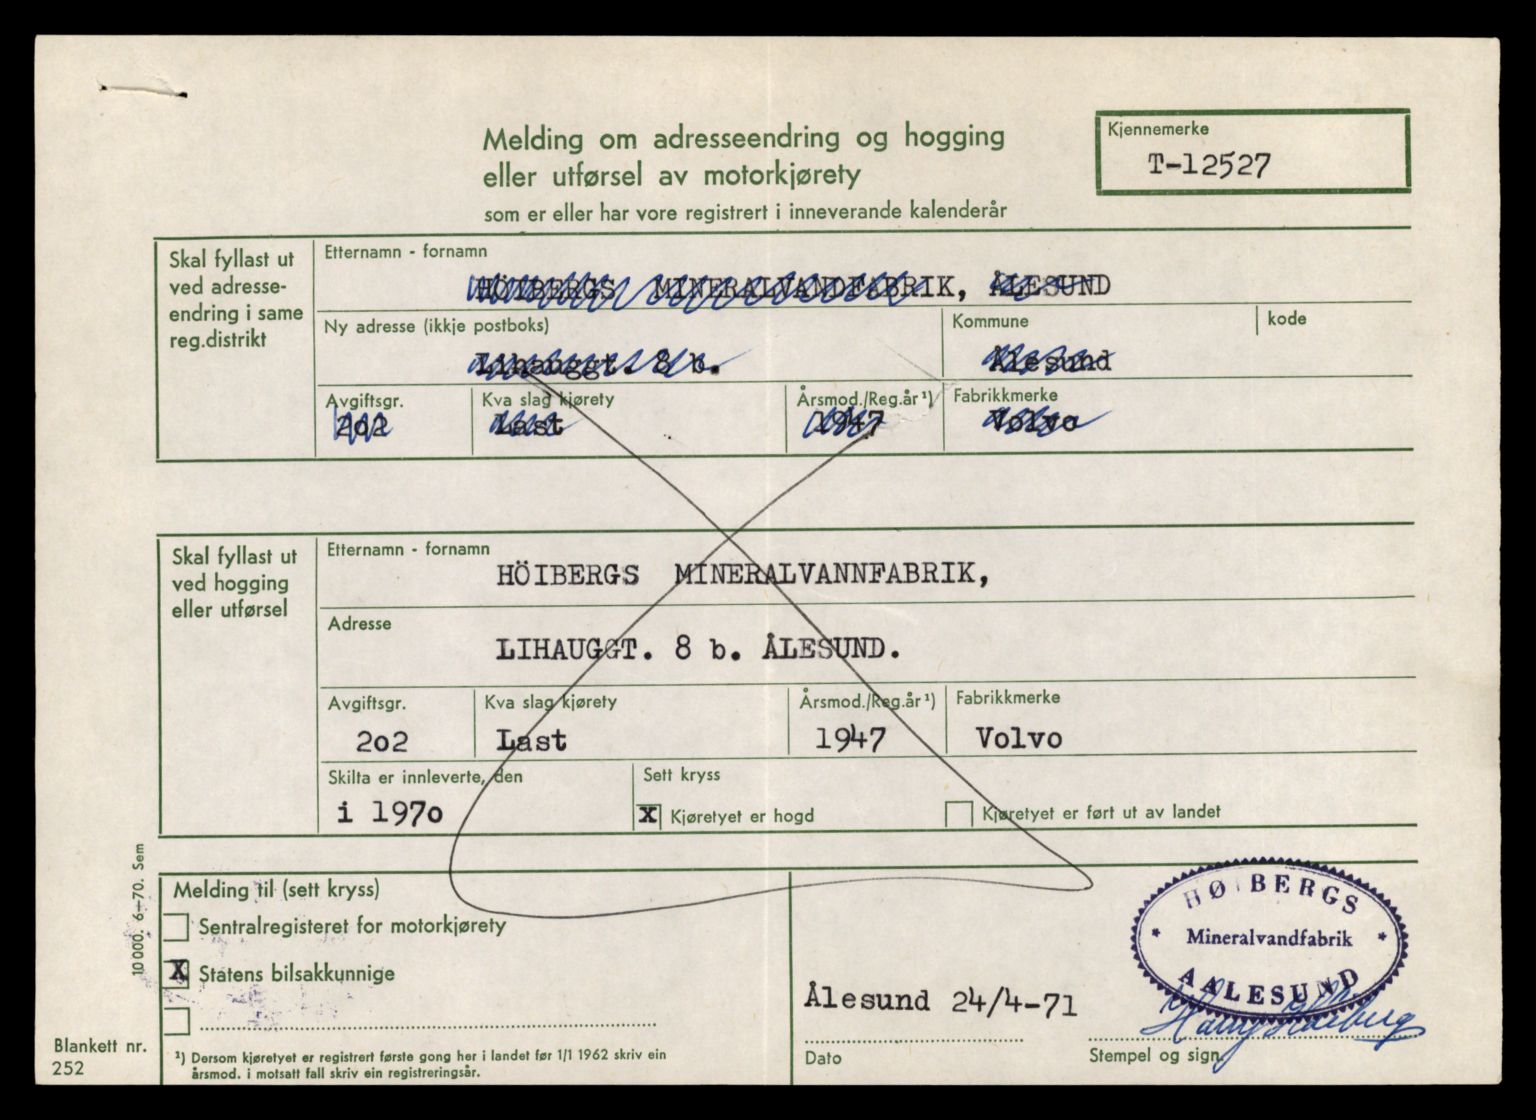 Melding om adresseendring og hogging
eller utførsel av motorkjørety
som er eller har vore registrert i inneverande kalenderår
Kjennemerke
T-12527
Skal fyllast ut
ved adresse-
endring i same
reg.distrikt
Etternamn - fornamn
HÖIBERGS MINERALVANDFABRIK, ÅLESUND
Ny adresse (ikkje postboks)
Kommune
kode
Lihauggt. 8 b.
Ålesund
Avgiftsgr.
Kva slag kjørety
Årsmod./Reg.år ¹)
Fabrikkmerke
2o2
Last
1947
Volvo
Skal fyllast ut
ved hogging
eller utførsel
Etternamn - fornamn
HÖIBERGS MINERALVANNFABRIK,
Adresse
LIHAUGGT. 8 b. ÅLESUND.
Avgiftsgr.
Kva slag kjørety
Årsmod./Reg.år ¹)
Fabrikkmerke
2o2
Last
1947
Volvo
Skilta er innleverte, den
Sett kryss
i 197o
X Kjøretyet er hogd
Kjøretyet er ført ut av landet
10 000. 6-70. Sem
Melding til (sett kryss)
Sentralregisteret for motorkjørety
X Statens bilsakkunnige
HØIBERGS
Mineralvandfabrik
AALESUND
Ålesund 24/4-71
Dato
Stempel og sign.
Blankett nr.
252
¹) Dersom kjøretyet er registrert første gong her i landet før 1/1 1962 skriv ein
årsmod. i motsatt fall skriv ein registreringsår.